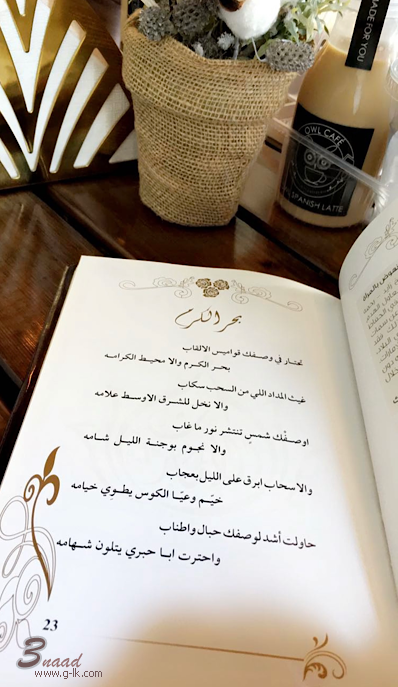 MADE FOR YOU
OWL CAFE
SPANISH LATTE
بحر الكرم
تحتار في وصفك قواميس الالقاب
بحر الكرم والا محيط الكرامه
غيث المداد اللي من السحب سكاب
والا نخل للشرق الاوسط علامه
اوصفْك شمسٍ تنتشر نور ما غاب
والا نجوم بوجنة الليل شامه
والا سحاب ابرق على الليل بعجاب
خيّم وعيّا الكوس يطوي خيامه
حاولت أشد لوصفك حبال واطناب
واحترت ابا حبري يتلون شهامه
23
3naad
www.g-lk.com